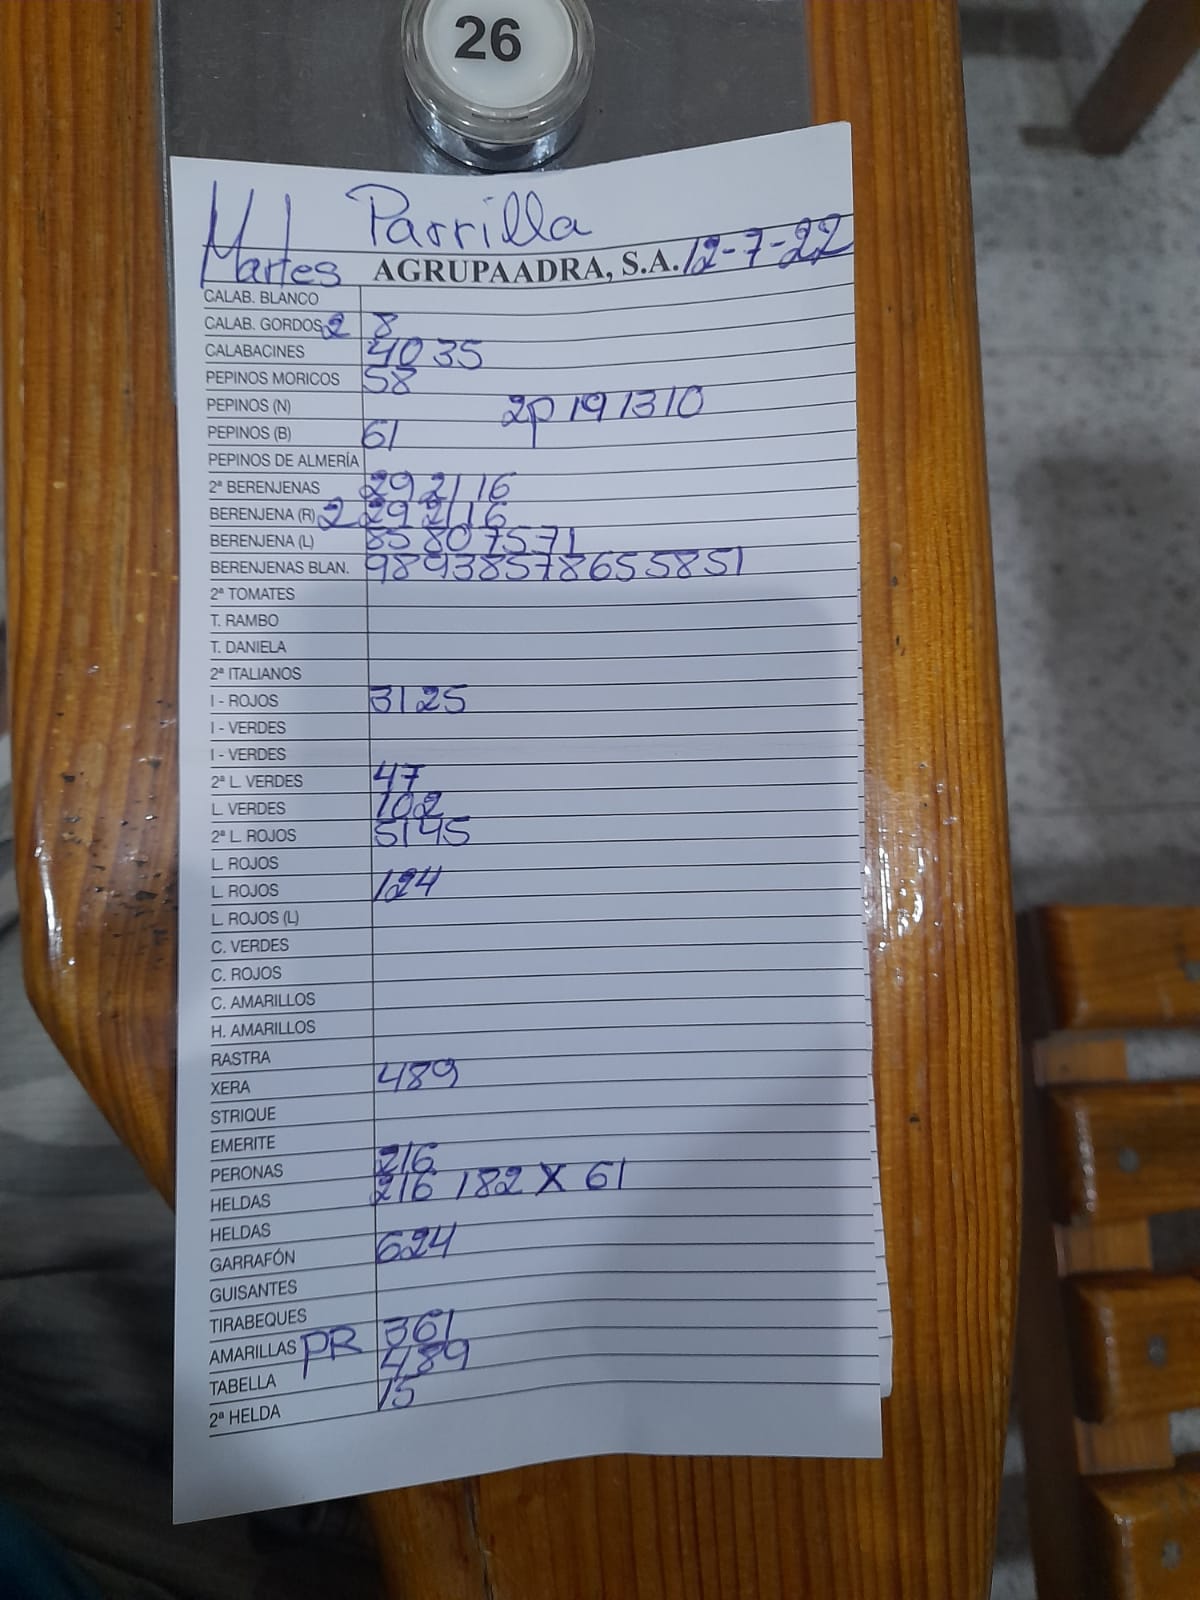 26
Parrilla
Martes AGRUPAADRA, S.A. 12-7-22
CALAB. BLANCO
CALAB. GORDOS 2 8
CALABACINES 40 35
PEPINOS MORICOS 58
PEPINOS (N) 2p 19 13 10
PEPINOS (B) 61
PEPINOS DE ALMERÍA
2ª BERENJENAS 29 21 16
BERENJENA (R) 2 29 21 16
BERENJENA (L) 85 80 75 71
BERENJENAS BLAN. 98 93 85 78 65 58 51
2ª TOMATES
T. RAMBO
T. DANIELA
2ª ITALIANOS
I - ROJOS 31 25
I - VERDES
I - VERDES
2ª L. VERDES 47
L. VERDES 102
2ª L. ROJOS 51 45
L. ROJOS
L. ROJOS 124
L. ROJOS (L)
C. VERDES
C. ROJOS
C. AMARILLOS
H. AMARILLOS
RASTRA
XERA 489
STRIQUE
EMERITE
PERONAS 216
HELDAS 216 182 X 61
HELDAS
GARRAFÓN 624
GUISANTES
TIRABEQUES
AMARILLAS PR 361
TABELLA 489
2ª HELDA 15